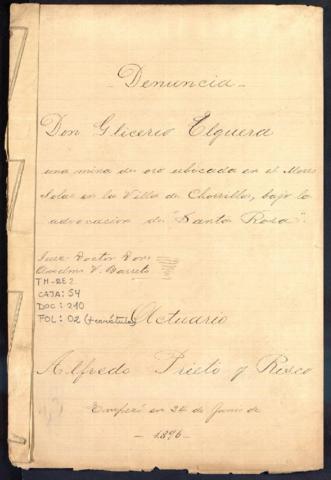 Denuncia
Don Glicerio Elguera
una mina de oro ubicada en el Morro
Solar en la Villa de Chorrillos, bajo la
advocacion de "Santa Rosa".
Juez Doctor Don
Anselmo V. Barreto
TM-RE 2
CAJA: 54
DOC: 210
FOL: 02 (+carátula)
Actuario
Alfredo Prieto y Risco
Empezó en 24 de Junio de
- 1896 -